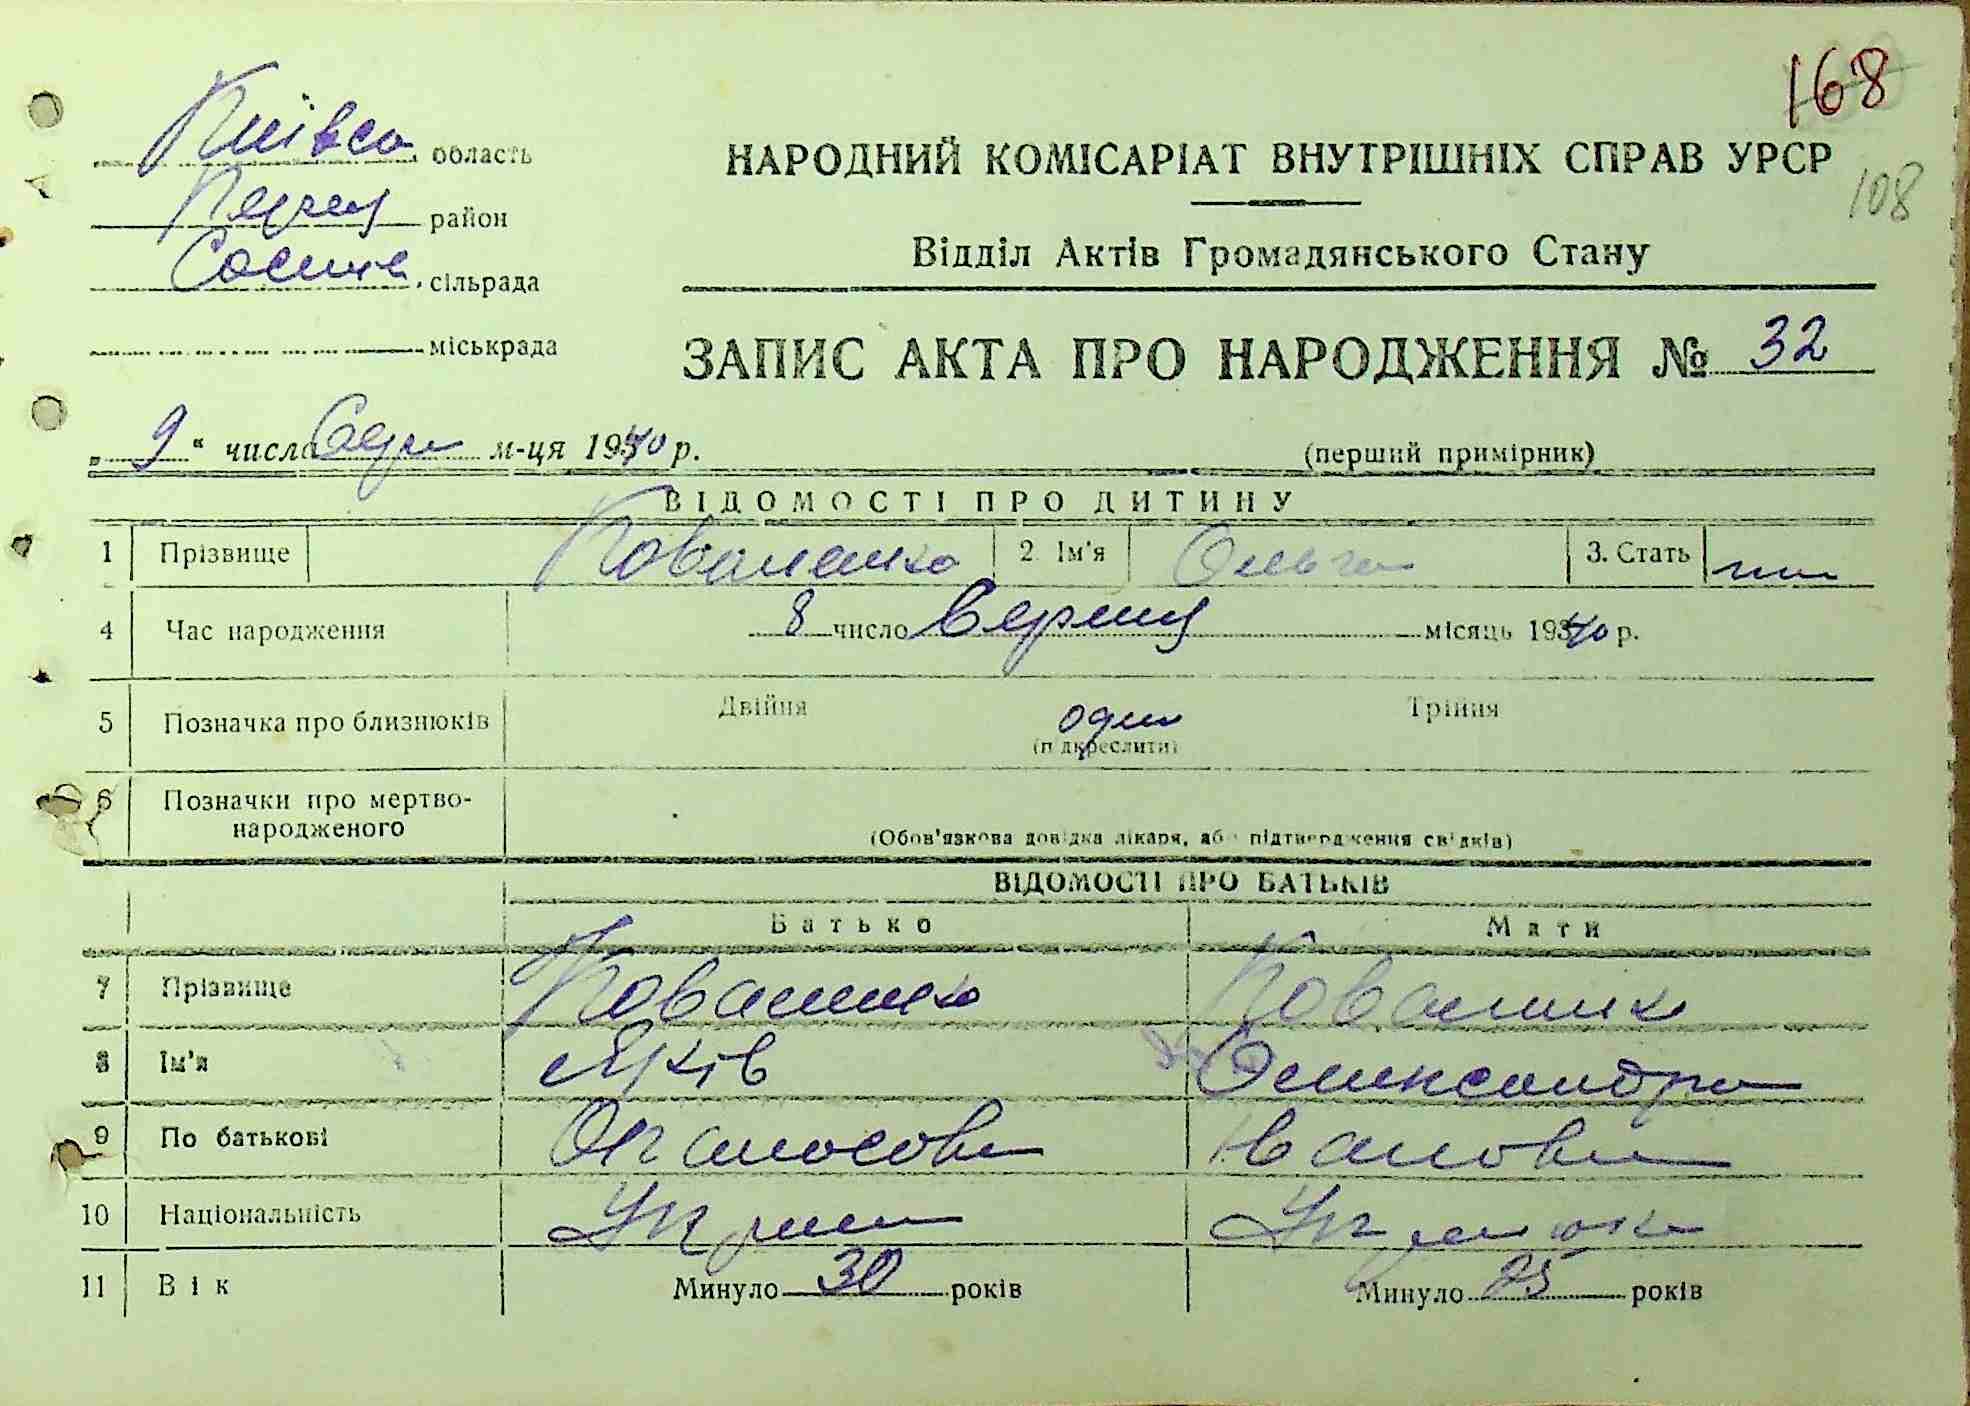 168
Київсо область
НАРОДНИЙ КОМІСАРІАТ ВНУТРІШНІХ СПРАВ УРСР
108
район
Відділ Актів Громадянського Стану
сільрада
міськрада
ЗАПИС АКТА ПРО НАРОДЖЕННЯ № 32
„9“ числа м-ця 1940 р. (перший примірник)
ВІДОМОСТІ ПРО ДИТИНУ
1 Прізвище Коваленко 2. Ім'я Ольга 3. Стать
4 Час народження 8 число місяць 1940 р.
5 Позначка про близнюків Двійня один Трійня
(підкреслити)
6 Позначки про мертво-
народженого
(Обов'язкова довідка лікаря, або підтвердження свідків)
ВІДОМОСТІ ПРО БАТЬКІВ
Батько Мати
7 Прізвище Коваленко Коваленко
8 Ім'я Яків Олександра
9 По батькові Івановна
10 Національність
11 Вік Минуло 30 років Минуло 25 років